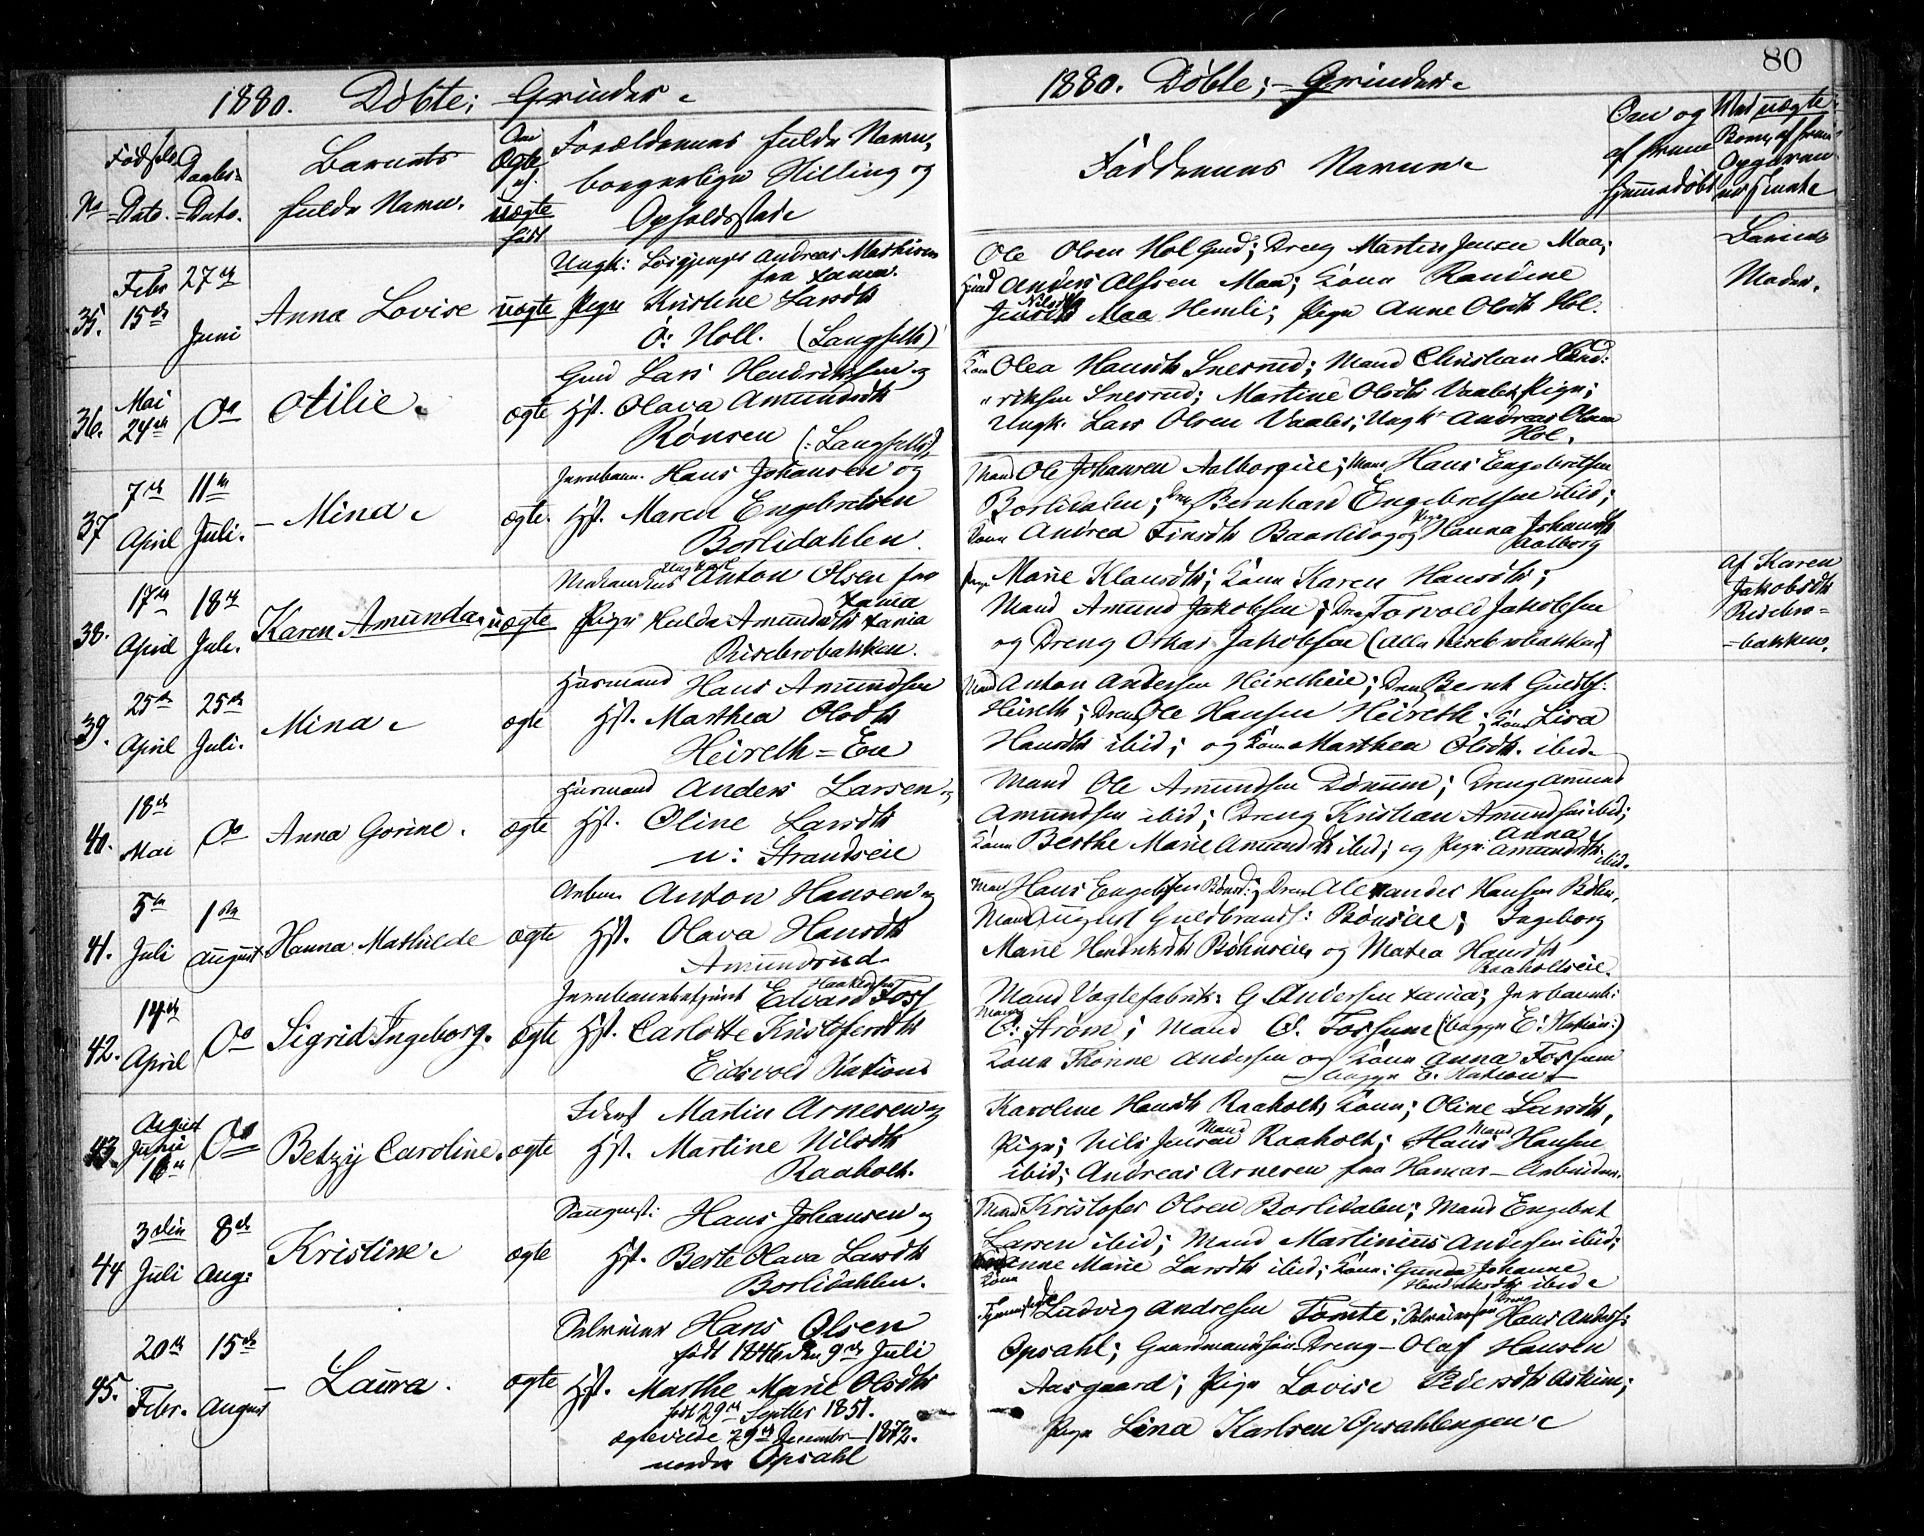 80
1880. Døbte; Qvinder.
No
Fødsels-
Dato.
Daabs-
Dato.
Barnets
fulde Navn.
Om
Ægte
el.
uægte
født
Forældrenes fulde Navn,
borgerlige Stilling og
Opholdsstæd
35.
Febr
15de
27de
Juni
Anna Lovise
uægte
Ungk: Andreas Mathisen
fra
Pige Kristine Larsdtr
O: Holl. (Langseth)
36.
Mai
24de
Do
Otilie.
ægte
Gmd Lars Hendriksen og
Hst. Olava Amundsdtr
Rønsen (: Langseth:)
37
7de
April
11te
Juli.
Mina.
ægte.
Jernbanm. Hans Johansen og
Hst. Maren Engebretsen
Borlidahlen.
38.
17de
April
18de
Juli.
Karen Amunda.
uægte
Ungkarl
Anton Olsen fra
Pige Hulda Amundsdtr
Risebrobakken.
39.
25de
April
25de
Juli.
Mina.
ægte
Husmand Hans Amundsen
Hst. Marthea Olsdtr
Heireth-Eie
40.
18de
Mai
Do
Anna Gorine.
ægte
Husmand Anders Larsen og
Hst. Oline Larsdtr
u: Strandseie
41.
5te
Juli
1ste
August
Hanna Mathilde
ægte
Arbm. Anton Hansen og
Hst. Olava Hansdtr
Amundrud
42.
14de
April
Do
Sigrid Ingeborg.
ægte
Haakensen
Jernbanebetjent Edvard Foss
Hst. Carlotte Kristofersdtr
Eidsvold Station
43.
Juni
16de
Do
Betzy Caroline.
ægte
Martin Arnesen og
Hst. Martine Nilsdtr
Raaholt.
44
3die
Juli
8de
Aug:
Kristine.
ægte
Hans Johansen og
Hst. Berte Olava Larsdtr
Borlidahlen.
45.
20de
Febr.
15de
August
Laura.
ægte
Selveier Hans Olsen
født 1846 den 9de Juli
Hst. Marthe Marie Olsdtr
født 29de Septbr 1851.
ægteviede 29de December 1872.
nordre Opsahl
1880. Døbte; Qvinder.
Faddernes Navne.
Om og
af hvem
hjemmedøbt
Ved uægte
Børn, af hvem
Opgaven
er skeet
Ole Olsen Hol Gmd; Dreng Martin Jensen Maa;
Anders Alfsen Maa; Kone Randine
Nilsdtr
Jensdtr Maa Hemli; Pige Anne Olsdtr Hol.
Barnets
Moder.
Kone Olea Hansdtr Snesrud; Mand Christian Hend:
riksen Snesrud; Martine Olsdtr Vaaler, Pige;
Ungk. Lars Olsen Vaaler; Ungk Andreas Olsen
Hol.
Mand Ole Johansen Aalborgeie; Mand Hans Engebretsen
Borlidalen; Dreng Bernhard Engebretsen ibid;
Kone Andrea Finsdtr Baarlidag og Pige Hanna Johansdtr
Aalborg
Pige Marie Klausdtr; Kone Karen Hansdtr;
Mand Amund Jakobsen; Dreng Torvold Jakobsen
og Dreng Oskar Jakobsen (Alle Risebrobakken)
Af Karen
Jakobsdtr
Risebro-
-bakken.
Mand Anton Andersen Heiretheie; Dreng Bernt Guldbr:
Heireth; Dreng Ole Hansen Heireth; Kone Lisa
Hansdtr ibid; og Kone Marthea Olsdtr. ibid.
Mand Ole Amundsen Dønnum; Dreng Amund
Amundsen ibid; Dreng Kristian Amundsen ibid;
Kone Berthe Marie Amundsdtr ibid; og Pige Anna
Amundsdtr ibid.
Mand Hans Engebretsen; Dreng Alexander Hansen Bøhn,
Mand August Guldbrands: Bønseie; Ingeborg
Marie Hendriksdtr Bøhnseie, og Matea Hansdtr
Raaholteie.
Mand Vægtefabrik: G Andersen; Jernbaneb:
Mand
O: Strøm; Mand O. Fossum (begge E: Station:)
Kone Thonne Andersen og Kone Anna Fossum
begge E. Station
Karoline Hansdtr Raaholt, Kone; Oline Larsdtr,
Pige; Nils Jensen Mand Raaholt; Hans Mand Hansen
ibid; Andreas Arnesen fra Hamar - Arbeider.
Mand Kristofer Olsen Borlidalen; Mand Engebret
Larsen ibid; Mand Martinius Andersen ibid;
Kone Anne Marie Larsdtr ibid; Kone: Gunda Johanne
Hendriksdtr ibid.
Ludvig Andresen Tomte; Selveiersøn Dreng Hans Anders:
Opsahl; Gaardmandssøn Dreng - Olaf Hansen
Aasgaard; Pige Lovise Pedersdtr Askim;
Pige Lina Karlsen Opsahlengen.